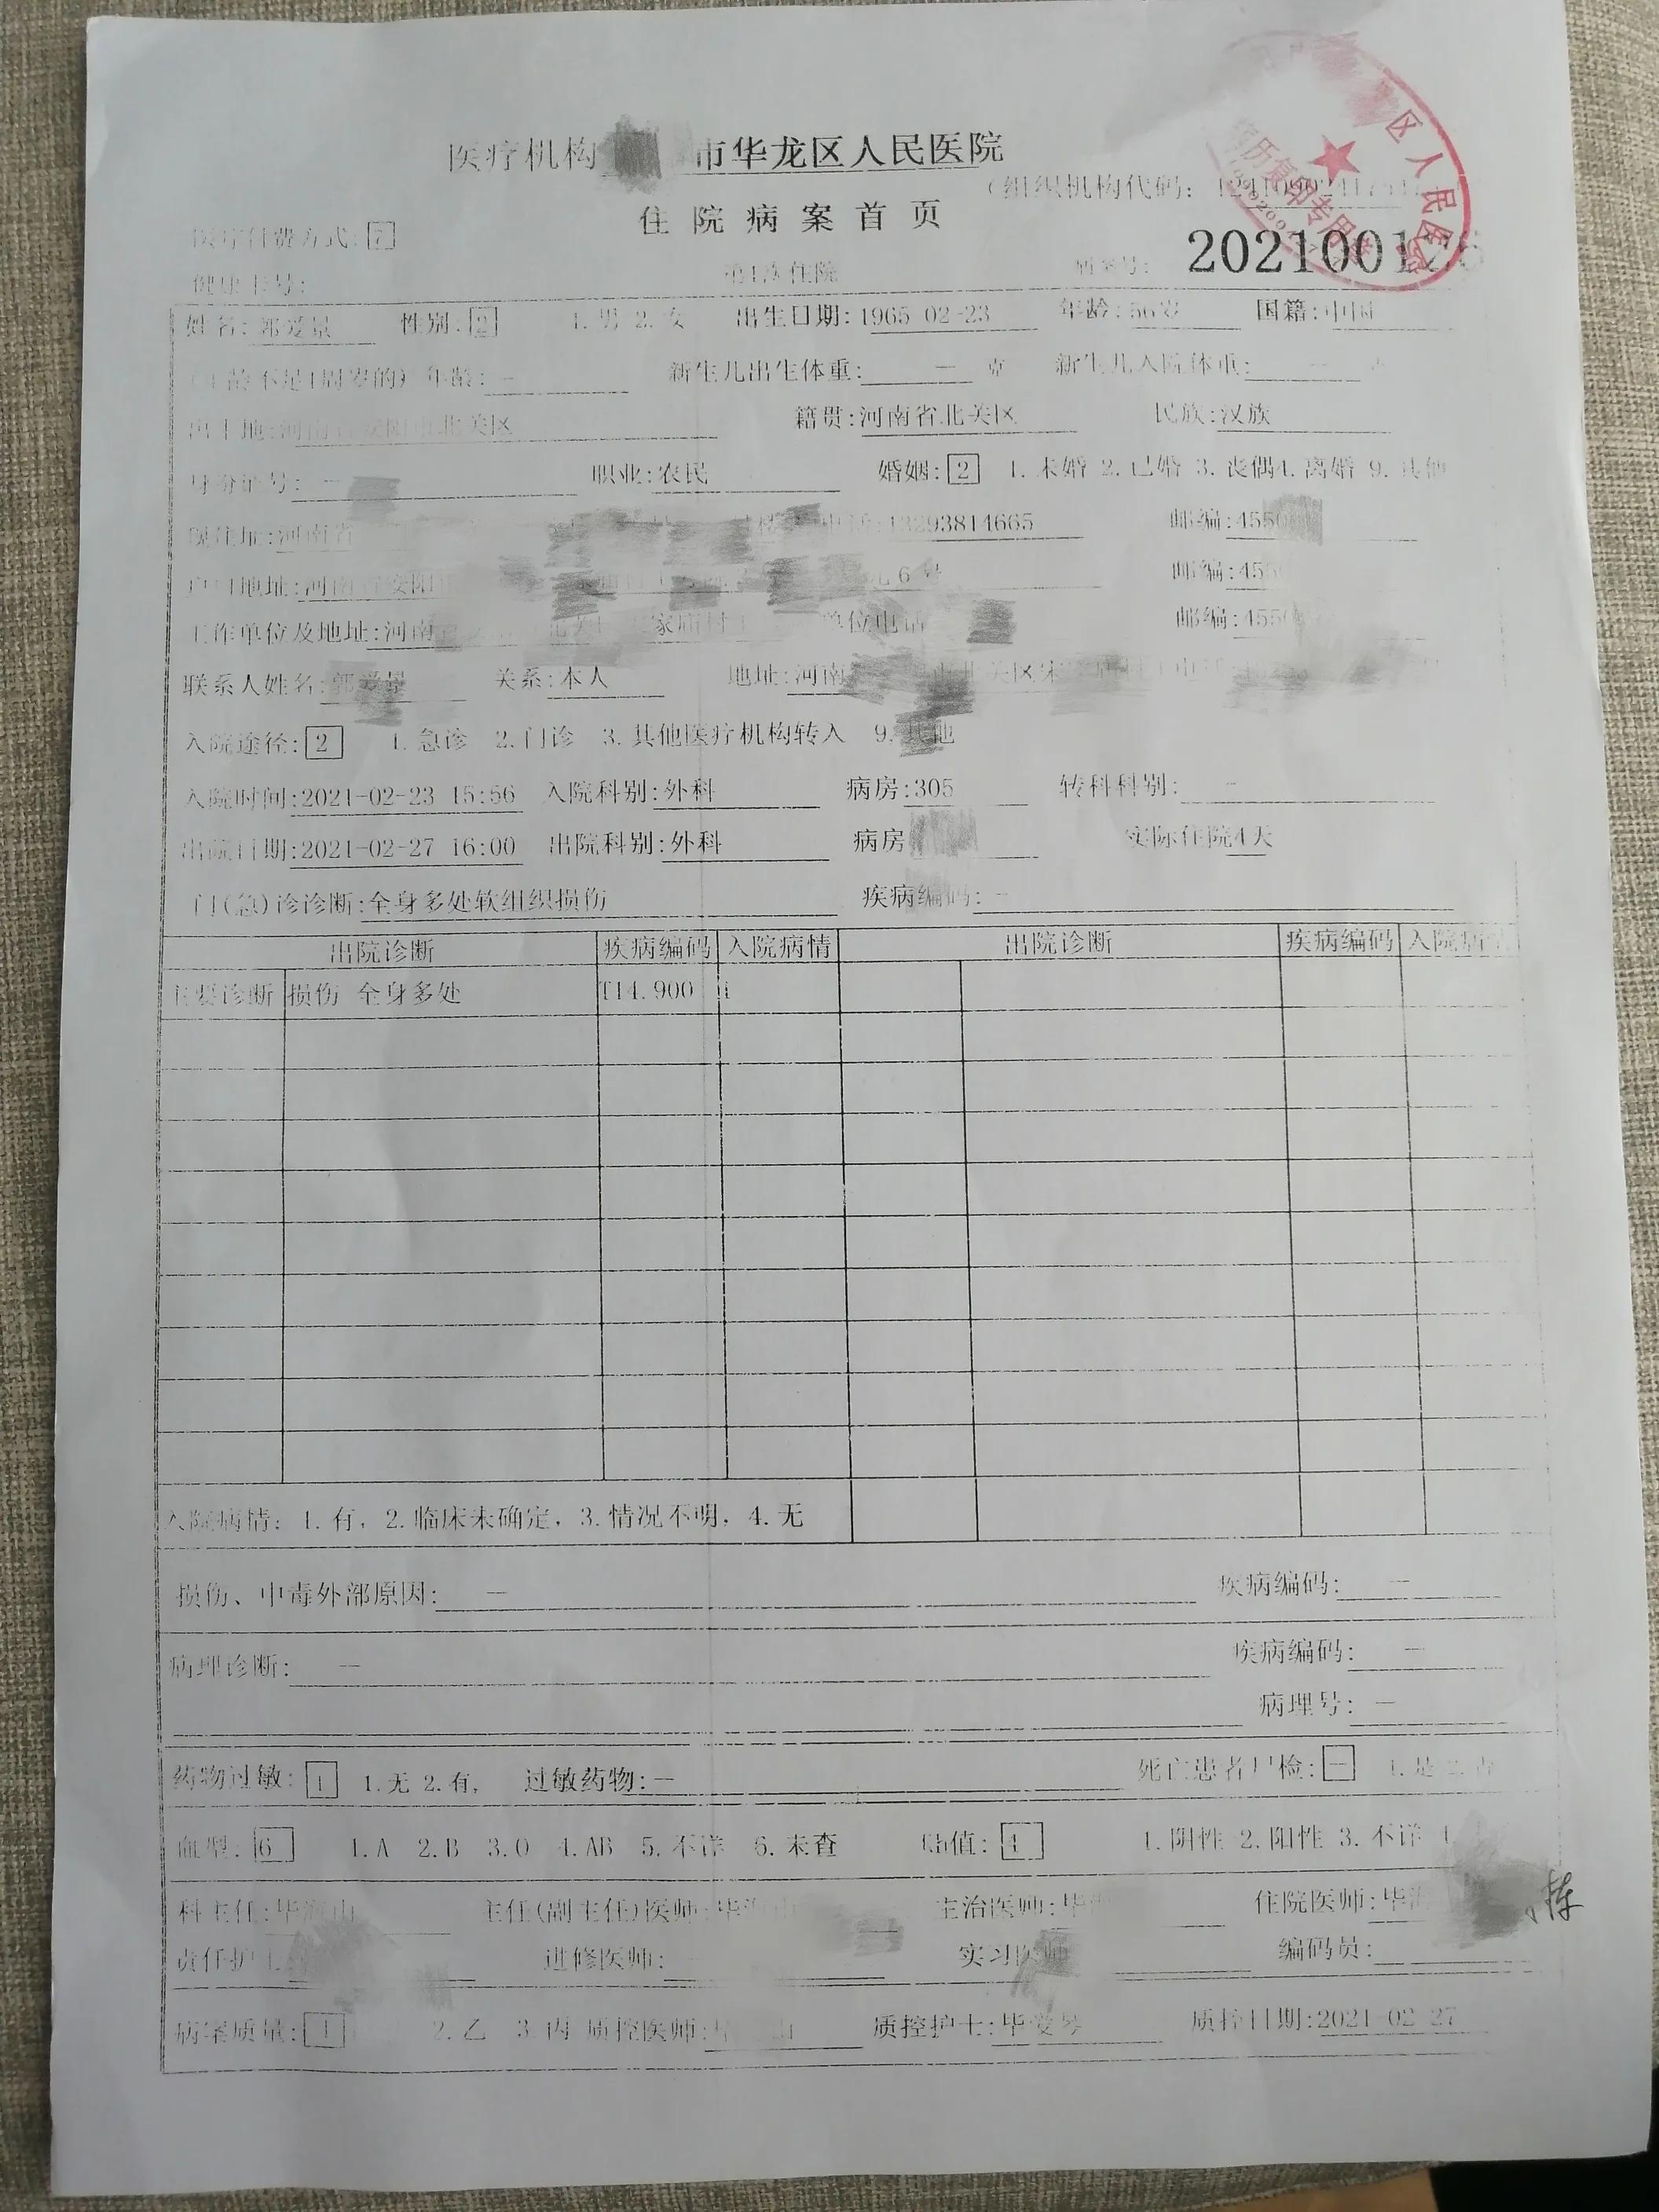 医疗机构 市华龙区人民医院
(组织机构代码:
区人民医院
病历复印专用章
住院病案首页
医疗付费方式:7
健康卡号:
第1次住院
病案号: 202100126
姓名:郭爱景 性别:2 1.男 2.女 出生日期:1965-02-23 年龄:56岁 国籍:中国
(年龄不足1周岁的)年龄:- 新生儿出生体重: - 克 新生儿入院体重: - 克
出生地:河南省安阳市北关区 籍贯:河南省北关区 民族:汉族
身份证号: - 职业:农民 婚姻:2 1.未婚 2.已婚 3.丧偶4.离婚 9.其他
现住址:河南省 电话:13293814665 邮编:455
户口地址:河南省安阳 元6号 邮编:455
工作单位及地址:河南 单位电话 邮编:455
联系人姓名:郭爱景 关系:本人 地址:河南 北关区
入院途径:2 1.急诊 2.门诊 3.其他医疗机构转入 9.其他
入院时间:2021-02-23 15:56 入院科别:外科 病房:305 转科科别: -
出院日期:2021-02-27 16:00 出院科别:外科 病房 实际住院4天
门(急)诊诊断:全身多处软组织损伤 疾病编码:-
出院诊断 疾病编码 入院病情 出院诊断 疾病编码 入院病情
主要诊断 损伤 全身多处 T14.900
入院病情: 1.有, 2.临床未确定, 3.情况不明, 4.无
损伤、中毒外部原因: - 疾病编码: -
病理诊断: - 疾病编码: -
病理号: -
药物过敏:1 1.无 2.有, 过敏药物:- 死亡患者尸检:- 1.是 2.否
血型:6 1.A 2.B 3.O 4.AB 5.不详 6.未查 Rh值:4 1.阴性 2.阳性 3.不详
科主任:毕海山 主任(副主任)医师:毕海山 主治医师:毕海 住院医师:毕海
责任护士 进修医师: - 实习医师 编码员:
病案质量:1 2.乙 3.丙 质控医师:毕 山 质控护士:毕爱琴 质控日期:2021-02-27